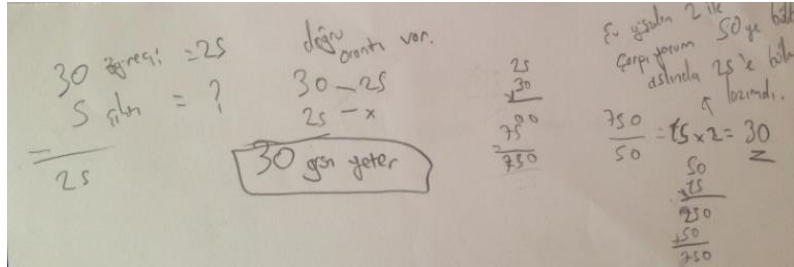 30 öğrenci = 25
5 çıktı = ?
25
doğru orantı var.
30 — 25
25 — x
30 gün yeter
25
x30
00
75
750
Bu yüzden 2 ile
çarpıyorum 50'ye böl
aslında 25'e böl
lazımdı.
750
50
= 15 x 2 = 30
50
x15
250
+50
750